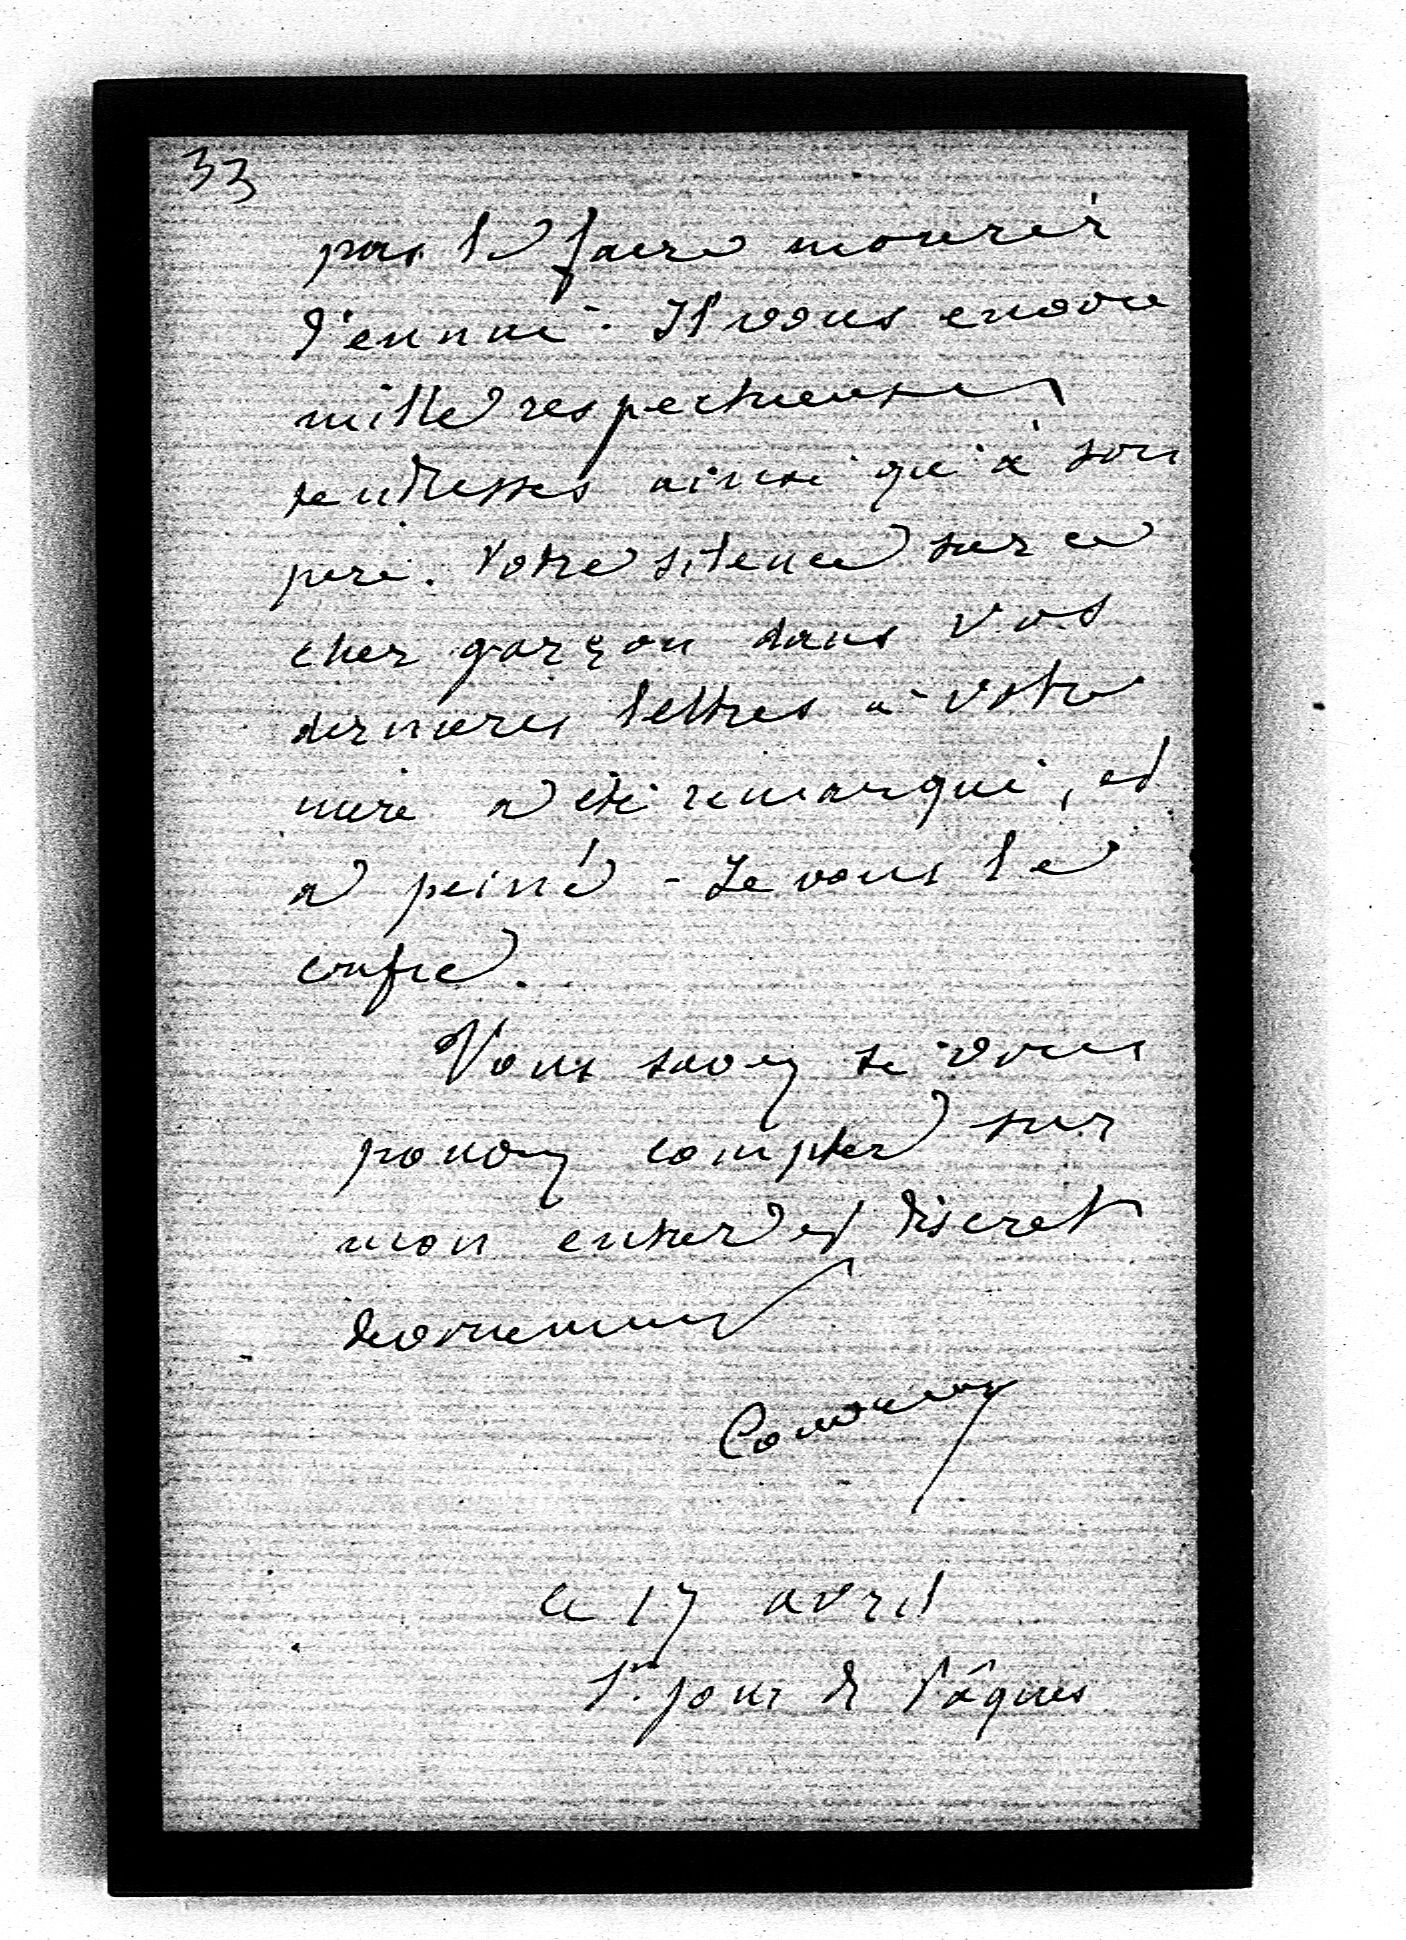 33
pas le faire mourir
d'ennui. Il vous envoie
mille respectueuses
tendresses ainsi qu'à son
père. Votre silence sur ce
cher garçon dans vos
dernières lettres à votre
mère a été remarqué, et
a peiné - Je vous le
confie.
Vous savez si vous
pouvez compter sur
mon entier et discret
dévouement
le 17 avril
1er jour de Pâques